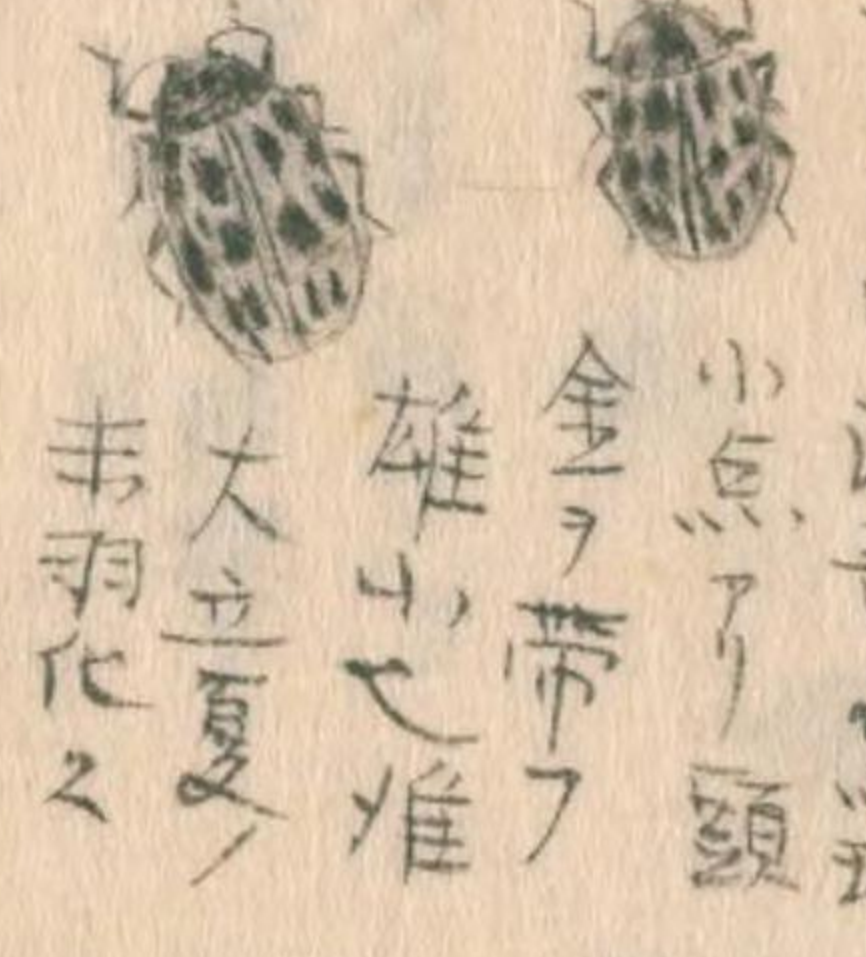 小点アリ頭
金ヲ帯フ
雄小也雌
大立夏ノ
末羽化ス